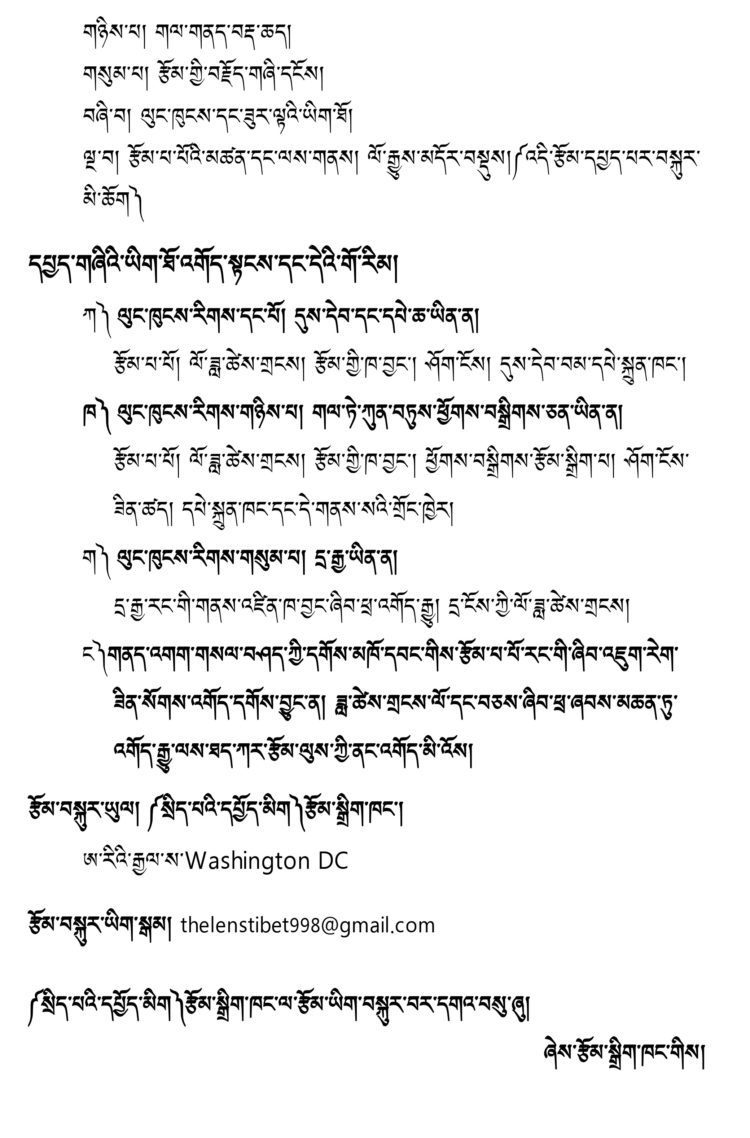 གཉིས་པ། གལ་གནད་བརྡ་ཆད།
གསུམ་པ། རྩོམ་གྱི་བརྗོད་གཞི་དངོས།
བཞི་བ། ལུང་ཁུངས་དང་ཟུར་ལྟའི་ཡིག་ཐོ།
ལྔ་བ། རྩོམ་པ་པོའི་མཚན་དང་ལས་གནས། ལོ་རྒྱུས་མདོར་བསྡུས། ༼འདི་རྩོམ་དཔྱད་པར་བསྐུར་
མི་ཆོག༽
དཔྱད་གཞིའི་ཡིག་ཐོ་འགོད་སྟངས་དང་དེའི་གོ་རིམ།
ཀ༽ ལུང་ཁུངས་རིགས་དང་པོ། དུས་དེབ་དང་དཔེ་ཆ་ཡིན་ན།
རྩོམ་པ་པོ། ལོ་ཟླ་ཚེས་གྲངས། རྩོམ་གྱི་ཁ་བྱང་། ཤོག་ངོས། དུས་དེབ་བམ་དཔེ་སྐྲུན་ཁང་།
ཁ༽ ལུང་ཁུངས་རིགས་གཉིས་པ། གལ་ཏེ་ཀུན་བཏུས་ཕྱོགས་བསྒྲིགས་ཅན་ཡིན་ན།
རྩོམ་པ་པོ། ལོ་ཟླ་ཚེས་གྲངས། རྩོམ་གྱི་ཁ་བྱང་། ཕྱོགས་བསྒྲིགས་རྩོམ་སྒྲིག་པ། ཤོག་ངོས་
ཟིན་ཚད། དཔེ་སྐྲུན་ཁང་དང་དེ་གནས་སའི་གྲོང་ཁྱེར།
ག༽ ལུང་ཁུངས་རིགས་གསུམ་པ། དྲ་རྒྱ་ཡིན་ན།
དྲ་རྒྱ་རང་གི་གནས་འཛིན་ཁ་བྱང་ཞིབ་ཕྲ་འགོད་རྒྱུ། དྲ་ངོས་ཀྱི་ལོ་ཟླ་ཚེས་གྲངས།
ང༽གནད་འགག་གསལ་བཤད་ཀྱི་དགོས་མཁོ་དབང་གིས་རྩོམ་པ་པོ་རང་གི་ཞིབ་འཇུག་རེག་
ཟིན་སོགས་འགོད་དགོས་བྱུང་ན། ཟླ་ཚེས་གྲངས་ལོ་དང་བཅས་ཞིབ་ཕྲ་ཞབས་མཆན་ཏུ་
འགོད་རྒྱུ་ལས་ཐད་ཀར་རྩོམ་ལུས་ཀྱི་ནང་འགོད་མི་འོས།
རྩོམ་བསྐུར་ཡུལ། ༼སྲིད་པའི་དཔྱོད་མིག༽རྩོམ་སྒྲིག་ཁང་།
ཨ་རིའི་རྒྱལ་ས་Washington DC
རྩོམ་བསྐུར་ཡིག་སྒམ། thelenstibet998@gmail.com
༼སྲིད་པའི་དཔྱོད་མིག༽རྩོམ་སྒྲིག་ཁང་ལ་རྩོམ་ཡིག་བསྐུར་བར་དགའ་བསུ་ཞུ།
ཞེས་རྩོམ་སྒྲིག་ཁང་གིས།